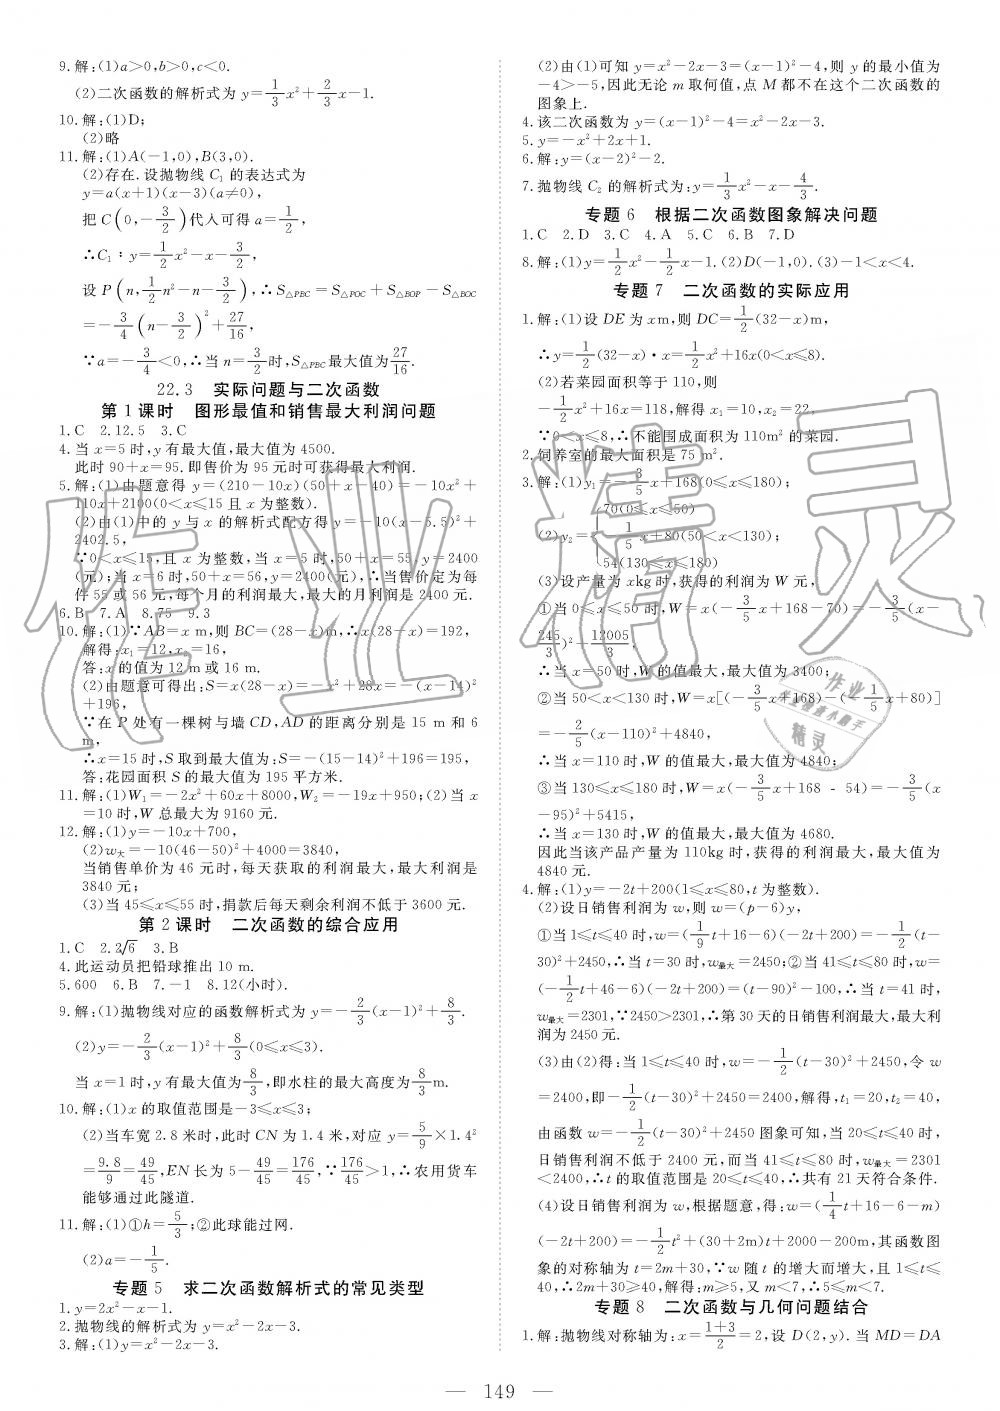 9.解:(1)a>0,b>0,c<0.
(2)二次函数的解析式为 y=1/3x²+2/3x-1.
10.解:(1)D;
(2)略
11.解:(1)A(-1,0),B(3,0).
(2)存在.设抛物线 C₁ 的表达式为
y=a(x+1)(x-3)(a≠0),
把 C(0,-3/2)代入可得 a=1/2,
∴C₁:y=1/2x²-x-3/2,
设 P(n,1/2n²-n-3/2),∴S△PBC=S△POC+S△BOP-S△BOC
=-3/4(n-3/2)²+27/16,
∵a=-3/4<0,∴当 n=3/2时,S△PBC最大值为27/16.
22.3 实际问题与二次函数
第1课时 图形最值和销售最大利润问题
1.C 2.12.5 3.C
4.当 x=5 时,y 有最大值,最大值为 4500.
此时 90+x=95.即售价为 95 元时可获得最大利润.
5.解:(1)由题意得 y=(210-10x)(50+x-40)=-10x²+
110x+2100(0<x≤15 且 x 为整数).
(2)由(1)中的 y 与 x 的解析式配方得 y=-10(x-5.5)²+
2402.5,
∵0<x≤15,且 x 为整数,当 x=5 时,50+x=55,y=2400
(元);当 x=6 时,50+x=56,y=2400(元),∴当售价定为每
件 55 或 56 元,每个月的利润最大,最大的月利润是 2400 元.
6.B 7.A 8.75 9.3
10.解:(1)∵AB=x m,则 BC=(28-x)m,∴x(28-x)=192,
解得:x₁=12,x₂=16,
答:x 的值为 12 m 或 16 m.
(2)由题意可得出:S=x(28-x)=-x²+28x=-(x-14)²
+196,
∵在 P 处有一棵树与墙 CD,AD 的距离分别是 15 m 和 6
m,
∴x=15 时,S 取到最大值为:S=-(15-14)²+196=195,
答:花园面积 S 的最大值为 195 平方米.
11.解:(1)W₁=-2x²+60x+8000,W₂=-19x+950;(2)当 x
=10 时,W 总最大为 9160 元.
12.解:(1)y=-10x+700,
(2)w大=-10(46-50)²+4000=3840,
当销售单价为 46 元时,每天获取的利润最大,最大利润是
3840 元;
(3)当 45≤x≤55 时,捐款后每天剩余利润不低于 3600 元.
第2课时 二次函数的综合应用
1.C 2.2√6 3.B
4.此运动员把铅球推出 10 m.
5.600 6.B 7.-1 8.12(小时).
9.解:(1)抛物线对应的函数解析式为 y=-2/3(x-1)²+8/3.
(2)y=-2/3(x-1)²+8/3(0≤x≤3).
当 x=1 时,y 有最大值为8/3,即水柱的最大高度为8/3m.
10.解:(1)x 的取值范围是-3≤x≤3;
(2)当车宽 2.8 米时,此时 CN 为 1.4 米,对应 y=5/9×1.4²
=9.8/9=49/45,EN 长为 5-49/45=176/45,∵176/45>1,∴农用货车
能够通过此隧道.
11.解:(1)①h=5/3;②此球能过网.
(2)a=-1/5.
专题5 求二次函数解析式的常见类型
1.y=2x²-x-1.
2.抛物线的解析式为 y=x²-2x-3.
3.解:(1)y=x²-2x-3.
(2)由(1)可知 y=x²-2x-3=(x-1)²-4,则 y 的最小值为
-4>-5,因此无论 m 取何值,点 M 都不在这个二次函数的
图象上.
4.该二次函数为 y=(x-1)²-4=x²-2x-3.
5.y=-x²+2x+1.
6.解:y=(x-2)²-2.
7.抛物线 C₂ 的解析式为:y=1/3x²-x-4/3.
专题6 根据二次函数图象解决问题
1.C 2.D 3.C 4.A 5.C 6.B 7.D
8.解:(1)y=1/2x²-1/2x-1.(2)D(-1,0).(3)-1<x<4.
专题7 二次函数的实际应用
1.解:(1)设 DE 为 xm,则 DC=1/2(32-x)m,
∴y=1/2(32-x)·x=1/2x²+16x(0<x≤8).
(2)若菜园面积等于 110,则
-1/2x²+16x=118,解得 x₁=10,x₂=22,
∵0<x≤8,∴不能围成面积为 110m² 的菜园.
2.饲养室的最大面积是 75 m².
3.解:(1)y₁=-3/5x+168(0≤x≤180);
(2)y₂={70(0≤x≤50)
-1/5x+80(50<x<130);
54(130≤x≤180)
(3)设产量为 xkg 时,获得的利润为 W 元,
①当 0≤x≤50 时,W=x(-3/5x+168-70)=-3/5(x-
245/3)²+12005/3,
∴当 x=50 时,W 的值最大,最大值为 3400;
②当 50<x<130 时,W=x[(-3/5x+168)-(-1/5x+80)]
=-2/5(x-110)²+4840,
∴当 x=110 时,W 的值最大,最大值为 4840;
③当 130≤x≤180 时,W=x(-3/5x+168 - 54)=-3/5(x
-95)²+5415,
∴当 x=130 时,W 的值最大,最大值为 4680.
因此当该产品产量为 110kg 时,获得的利润最大,最大值为
4840 元.
4.解:(1)y=-2t+200(1≤x≤80,t 为整数).
(2)设日销售利润为 w,则 w=(p-6)y,
①当 1≤t≤40 时,w=(1/9t+16-6)(-2t+200)=-1/2(t-
30)²+2450,∴当 t=30 时,w最大=2450;②当 41≤t≤80 时,w=
(-1/2t+46-6)(-2t+200)=(t-90)²-100,∴当 t=41 时,
w最大=2301,∵2450>2301,∴第 30 天的日销售利润最大,最大利
润为 2450 元.
(3)由(2)得:当 1≤t≤40 时,w=-1/2(t-30)²+2450,令 w
=2400,即-1/2(t-30)²+2450=2400,解得,t₁=20,t₂=40,
由函数 w=-1/2(t-30)²+2450 图象可知,当 20≤t≤40 时,
日销售利润不低于 2400 元,而当 41≤t≤80 时,w最大=2301
<2400,∴t 的取值范围是 20≤t≤40,∴共有 21 天符合条件.
(4)设日销售利润为 w,根据题意,得:w=(1/4t+16-6-m)
(-2t+200)=-1/2t²+(30+2m)t+2000-200m,其函数图
象的对称轴为 t=2m+30,∵w 随 t 的增大而增大,且 1≤t≤
40,∴2m+30≥40,解得:m≥5,又 m<7,∴5≤m<7.
专题8 二次函数与几何问题结合
1.解:抛物线对称轴为:x=1+3/2=2,设 D(2,y).当 MD=DA
— 149 —
作业精灵
作业
精灵